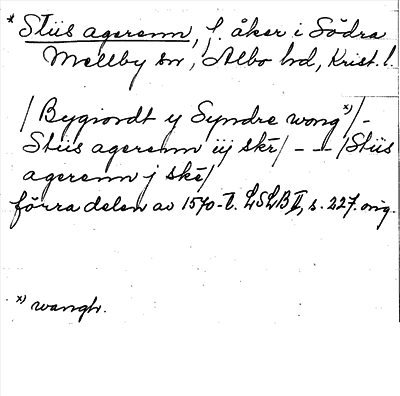 * Stiis agerenn, f. åker i Södra
Mellby sn, Albo hd, Krist. l.
/ Bygiordt y Syndre wong x) / -
Stiis agerenn iij skr / - - / Stiis
agerenn j skr /
förra delen av 1570-t. LSLB II, s. 227. orig.
x) wangh.